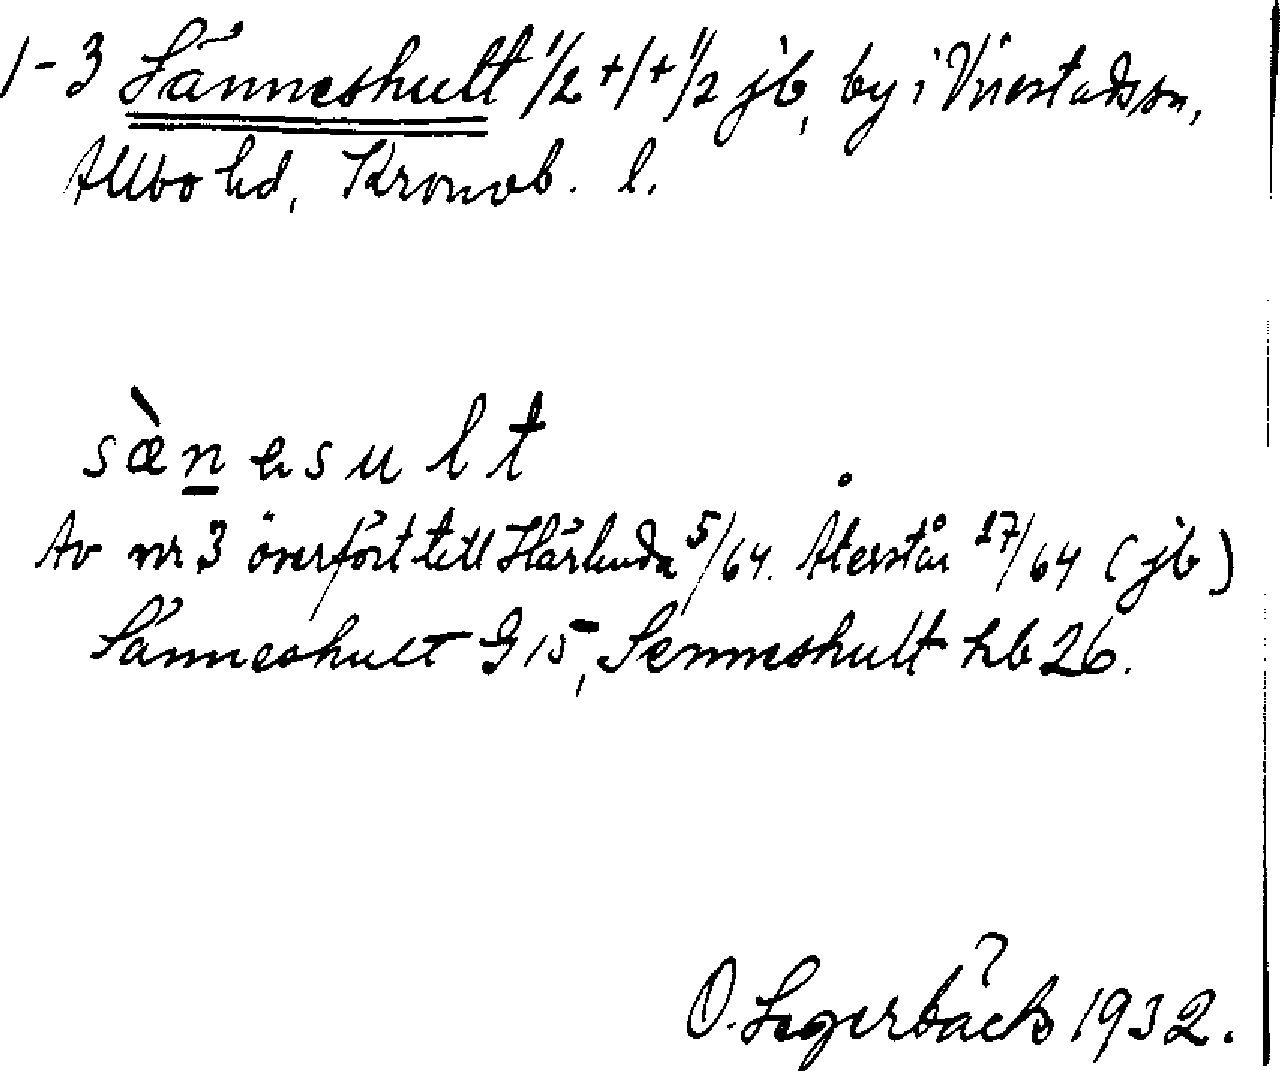 1-3 Sänneshult 1/2 + 1 + 1/2 jb, by i Virestads sn,
Allbo hd, Kronob. l.
sæ̀nesult
Av nr 3 överfört till Härlunda 5/64. Återstår 27/64 (jb)
Sänneshult G 15, Senneshult hb 26.
O. Segerbäck 1932.